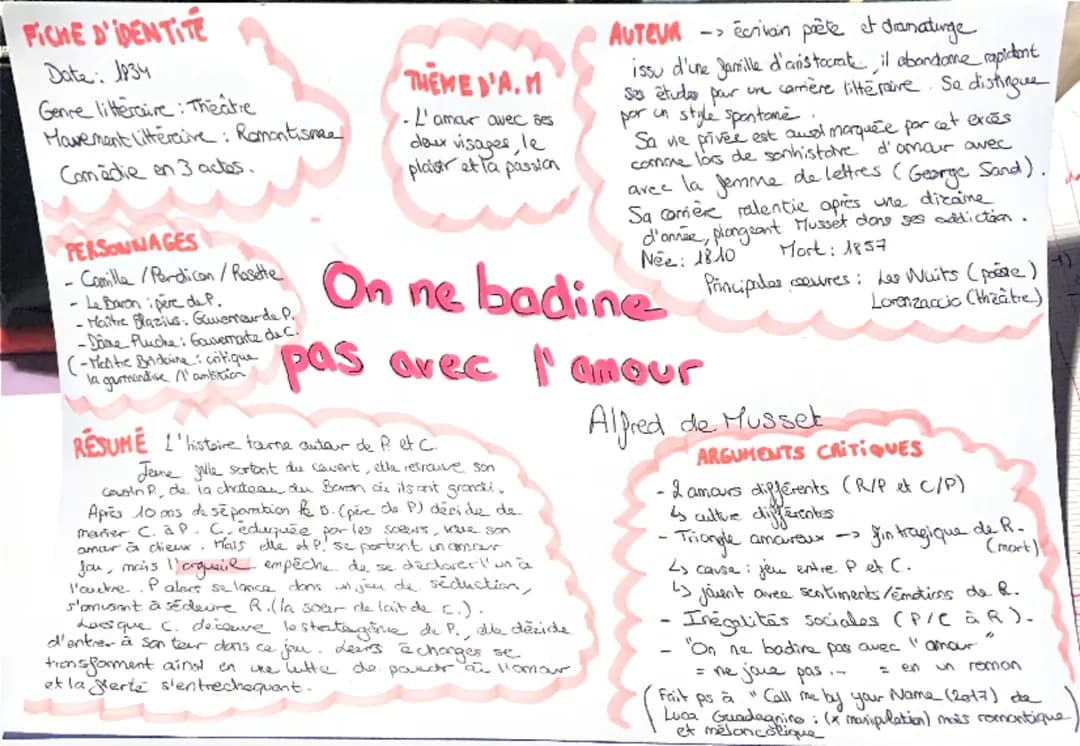 FICHE D'IDENTITÉ
Date : 1834
Genre littéraire : Théâtre
Mouvement littéraire : Romantisme
Comédie en 3 actes.
THÈME D'A.M
- L'amour avec ses
deux visages, le
plaisir et la passion
AUTEUR -> écrivain poète et dramaturge
issu d'une famille d'aristocrate, il abandonne rapidement
ses études pour une carrière littéraire. Se distingue
par un style spontané.
Sa vie privée est aussi marquée par cet excès
comme lors de son histoire d'amour avec
avec la femme de lettres (George Sand).
Sa carrière ralentie après une dizaine
d'année, plongeant Musset dans ses addiction.
Née : 1810 Mort : 1857
Principales oeuvres : Les Nuits (poésie)
Lorenzaccio (théâtre)
PERSONNAGES
- Camille / Perdican / Rosette
- Le Baron : père de P.
- Maître Blazius : Gouverneur de P.
- Dame Pluche : Gouvernante de C.
(- Maître Bridaine : critique
la gourmandise / l'ambition
On ne badine
pas avec l'amour
Alfred de Musset
RÉSUMÉ L'histoire tourne autour de P. et C.
Jeune fille sortant du couvent, elle retrouve son
cousin P., de la chateau du Baron où ils ont grandi.
Après 10 ans de séparation le B. (père de P) décide de
marier C. à P. C. éduquée par les soeurs, voue son
amour à dieux. Mais elle et P. se portent un amour
fou, mais l'orgueil empêche de se déclarer l'un à
l'autre. P alors se lance dans un jeu de séduction,
s'amusant à séduire R. (la soeur de lait de C.).
Lorsque C. découvre le stratagème de P., elle décide
d'entrer à son tour dans ce jeu. Leurs échanges se
transforment ainsi en une lutte de pouvoir où l'amour
et la fierté s'entrechoquent.
ARGUMENTS CRITIQUES
- 2 amours différents (R/P et C/P)
↳ culture différentes
- Triangle amoureux -> fin tragique de R.
(mort)
↳ cause : jeu entre P et C.
↳ jouent avec sentiments/émotions de R.
- Inégalités sociales (P/C à R).
- "On ne badine pas avec l'amour"
= ne joue pas... = en un roman
(Fait ps à "Call me by your Name (2017) de
Luca Guadagnino : (x manipulation) mais romantique)
et mélancolique